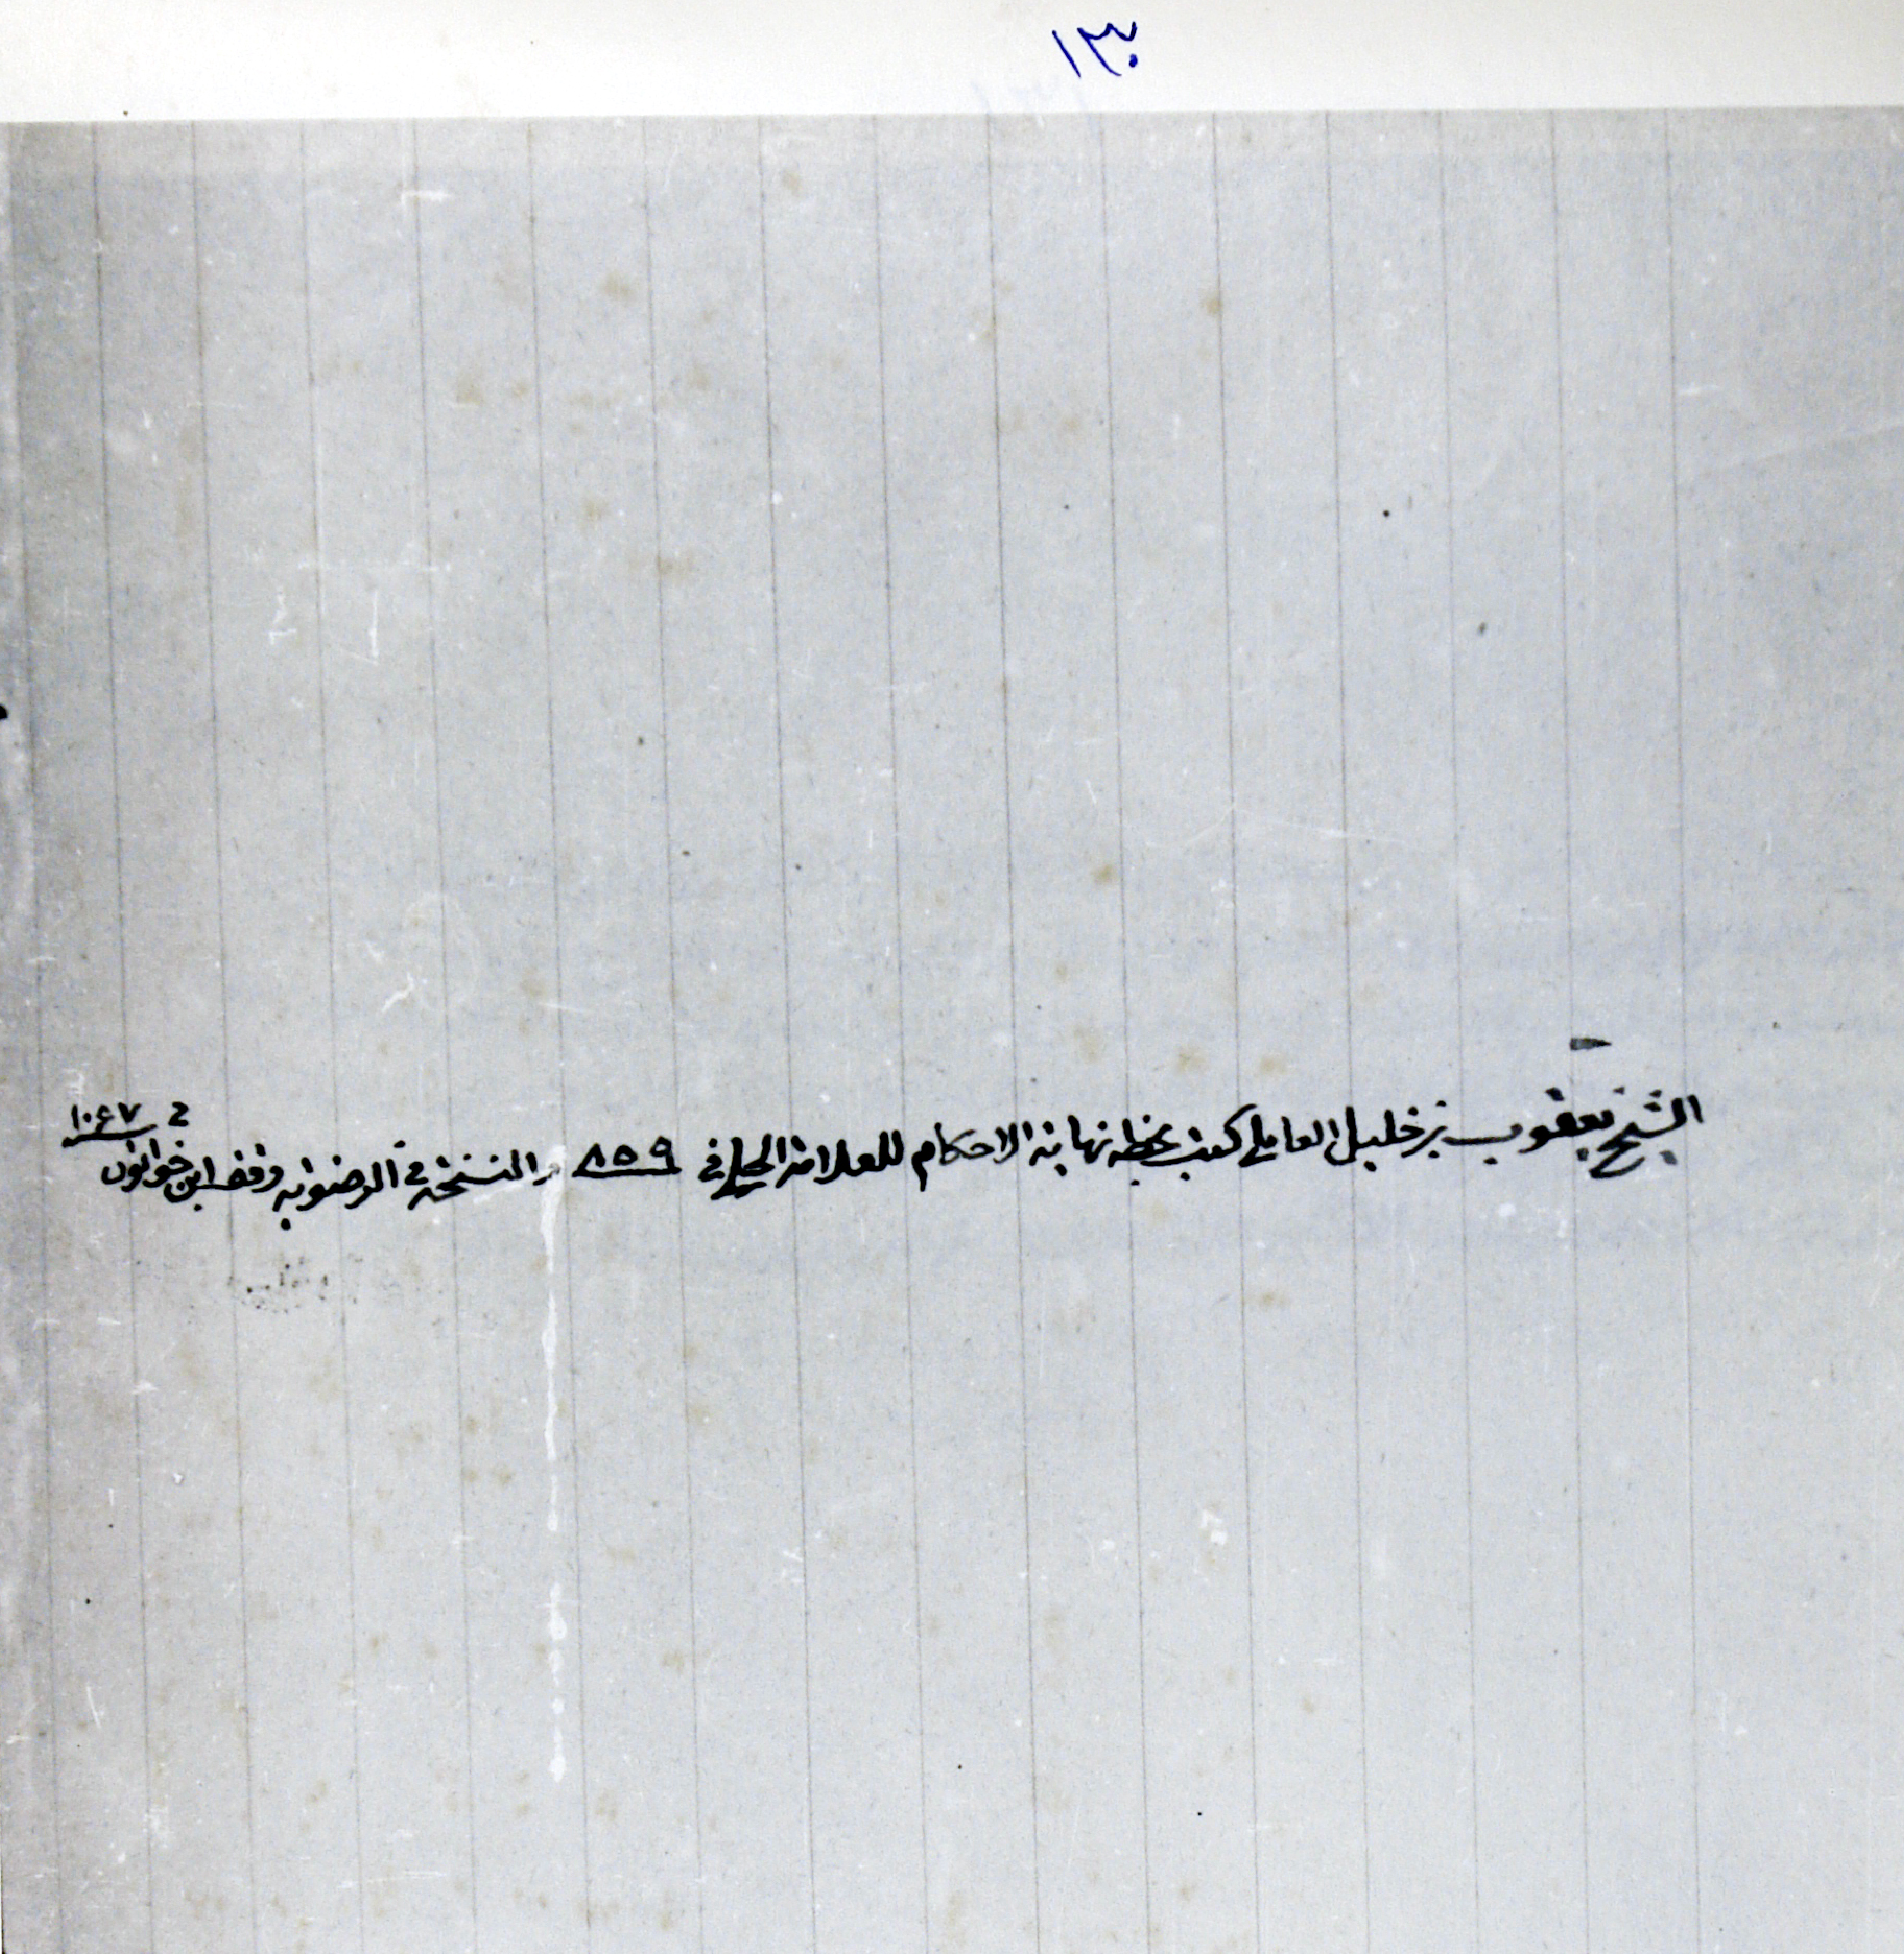 ١٣٠
الشيخ يعقوب بن خليل العاملي كتب بخطه نهاية الاحكام للعلامة الحلي في ٨٥٩ والنسخة في الرضوية وقف ابن خواتون في ١٠٦٧